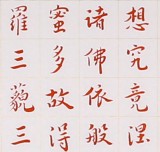 想究竟涅
诸佛依般
蜜多故得
羅三藐三